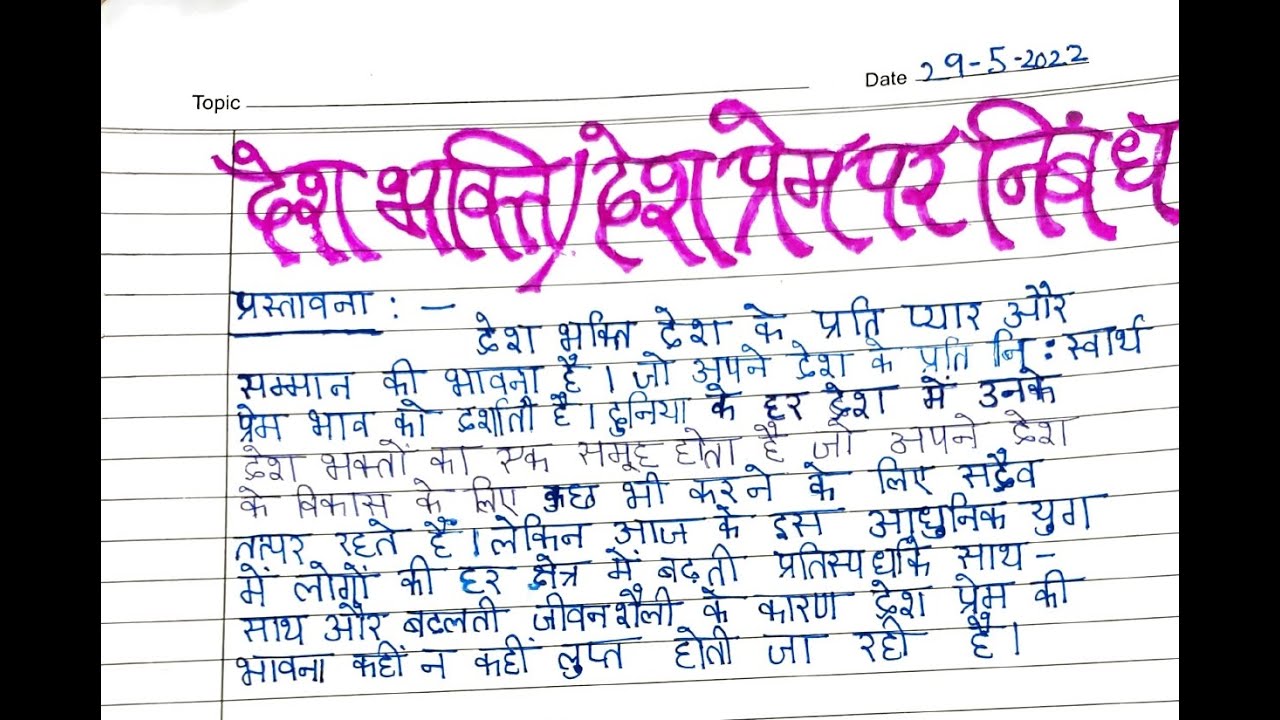 Date 29-5-2022
Topic
देश भक्ति/देश प्रेम पर निबंध
प्रस्तावना : –
देश भक्ति देश के प्रति प्यार और
सम्मान की भावना है । जो अपने देश के प्रति नि : स्वार्थ
प्रेम भाव को दर्शाती है । दुनिया के हर देश में उनके
देश भक्तों का एक समूह होता है जो अपने देश
के विकास के लिए कुछ भी करने के लिए सदैव
तत्पर रहते हैं । लेकिन आज के इस आधुनिक युग
में लोगों की हर क्षेत्र में बढ़ती प्रतिस्पर्धाके साथ –
साथ और बदलती जीवनशैली के कारण देश प्रेम की
भावना कहीं न कहीं लुप्त होती जा रही है ।